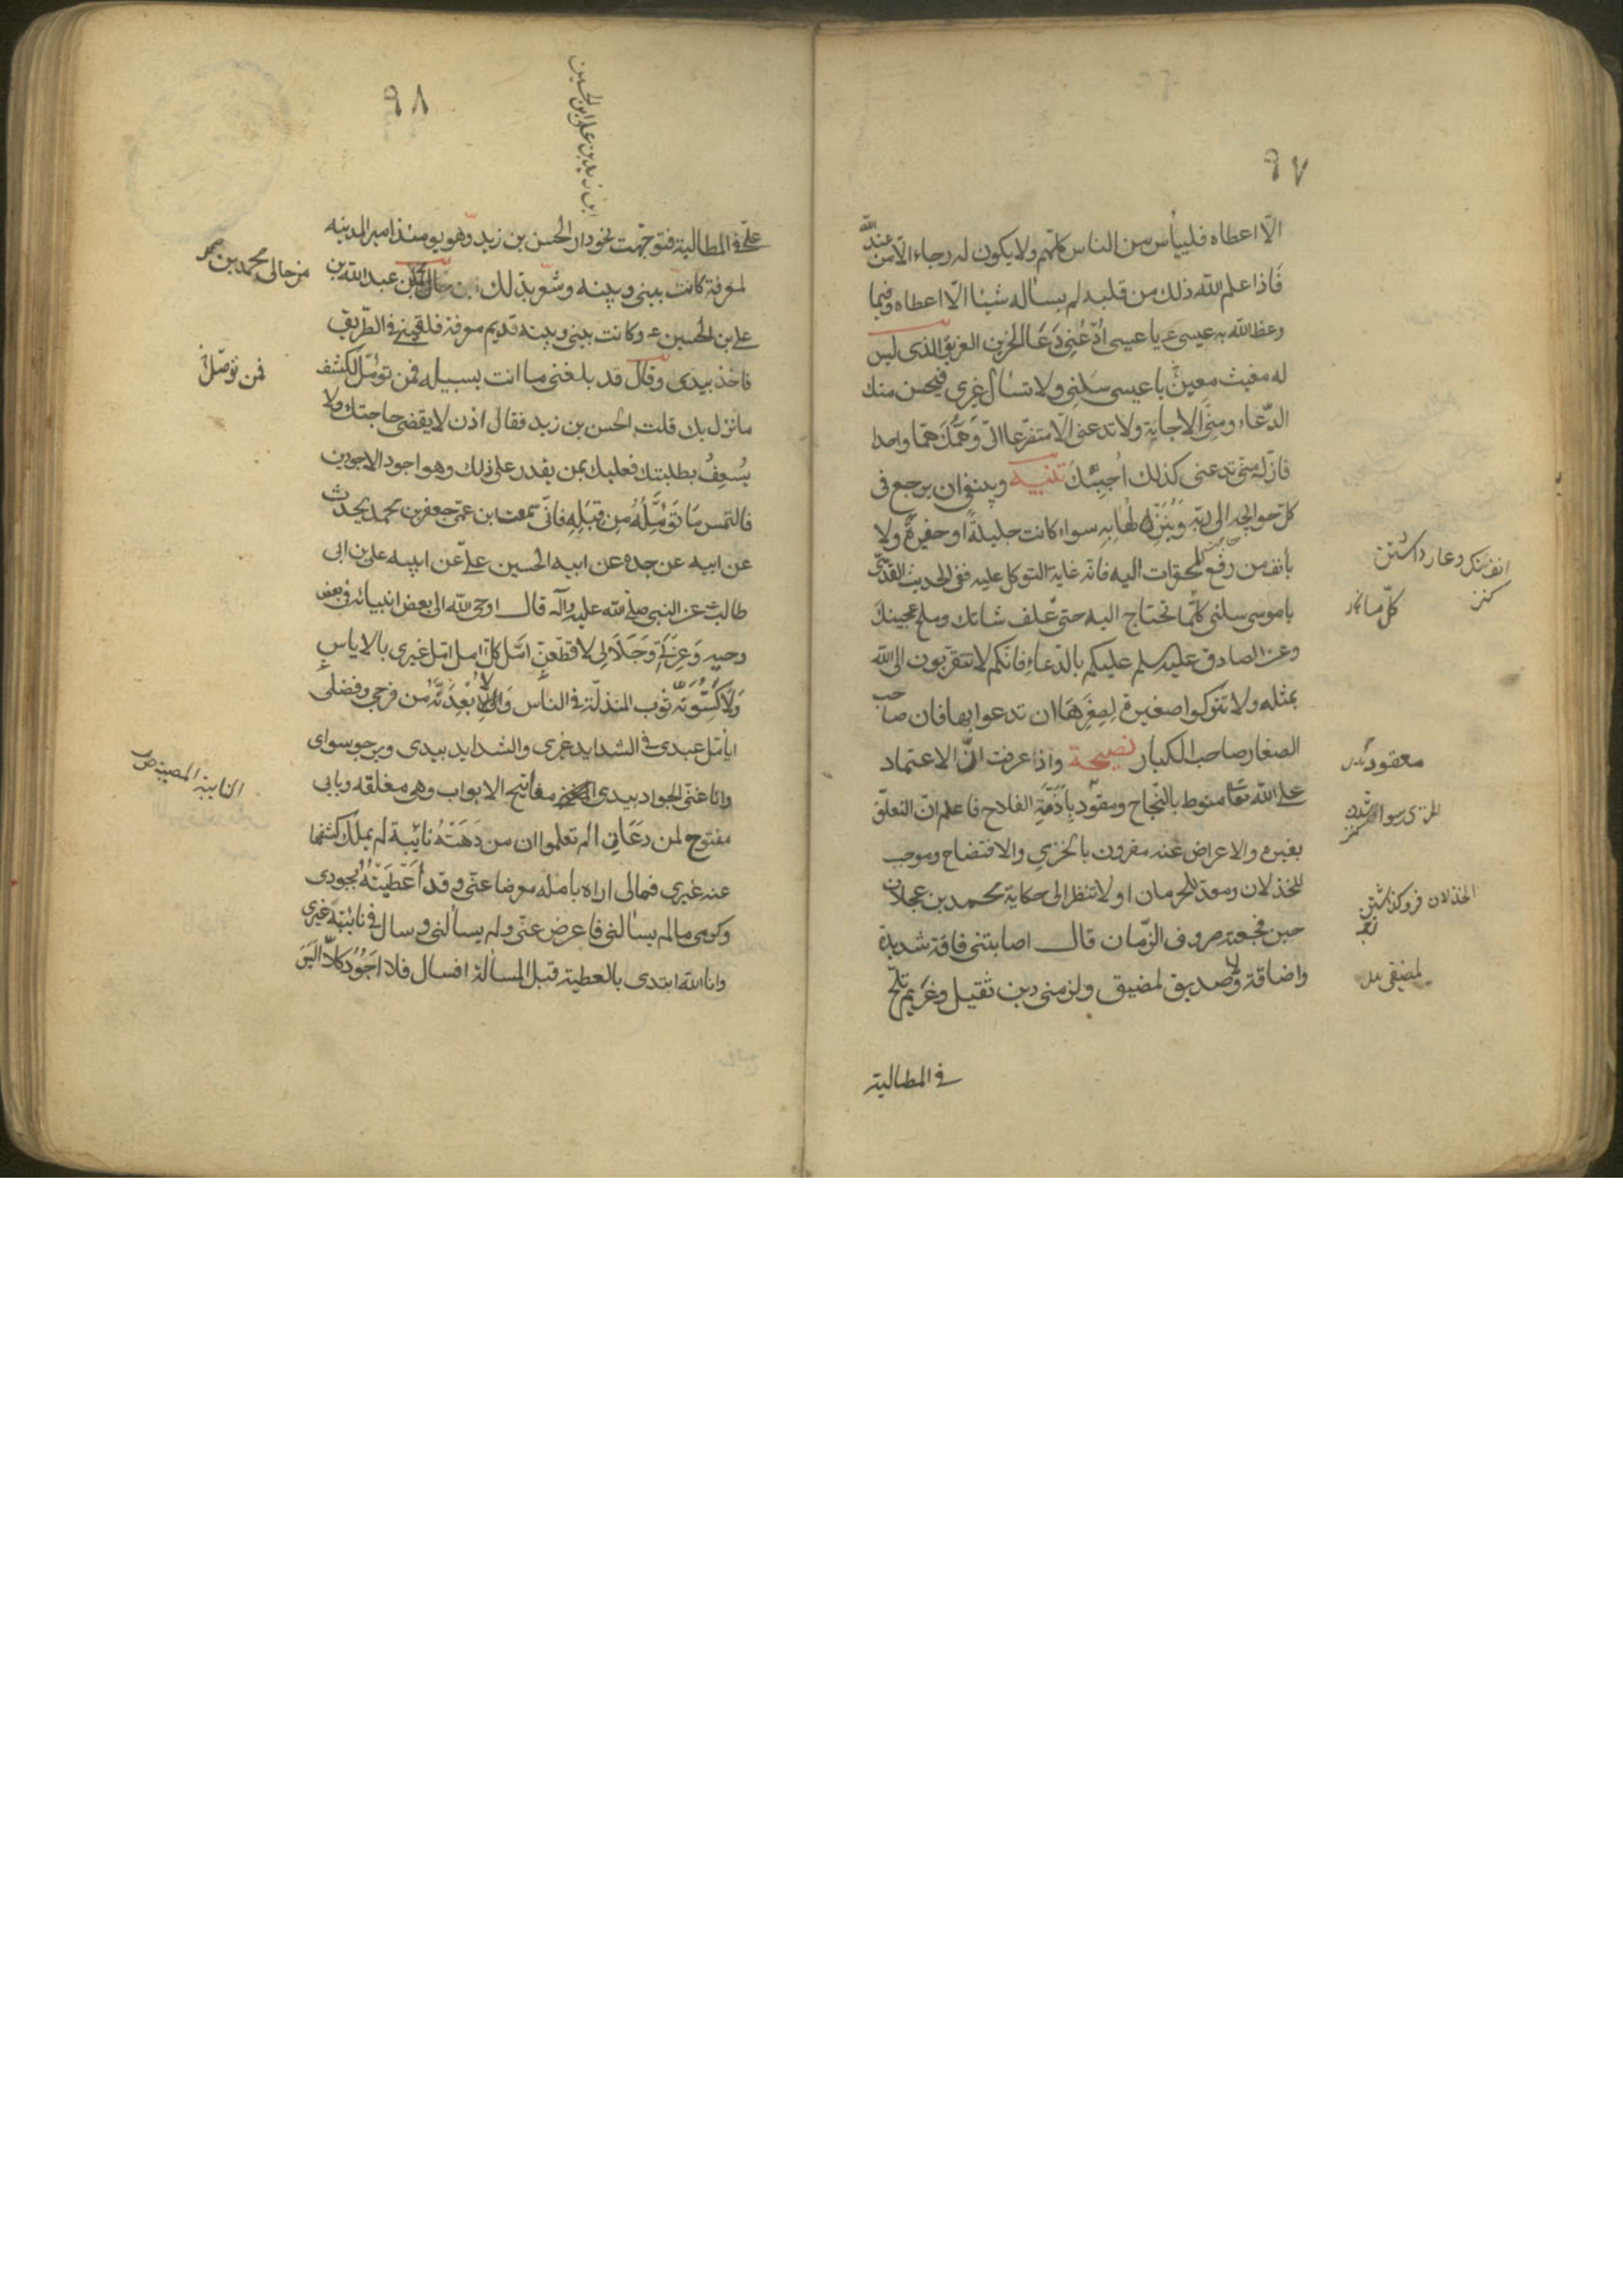 ٩٧
الّا اعطاه فلييأس من الناس كلّهم ولا يكون له رجاء الّا من عند الله
فاذا علم الله ذلك من قلبه لم يسأله شيئا الّا اعطاه وفيما
وعظ الله به عيسى ع يا عيسى اُدْعُنِي دُعَاء الحزين الغريق الذى ليس
له مغيث معين يا عيسى سَلْنِي ولا تسأل غيرى فيحسن منك
الدّعاء ومنّى الاجابة ولا تدعنى الّا متضرّعا الىّ وَهَمُّكَ همّا واحدا
فانّك متى تدعنى كذلك اُجِبْكَ تنبيه وينبغى ان يرجع فى
كلّ حوايجه الى ربّه وَيُنْزِلها به سواء كانت جليلةً او حقيرةً ولا
يأنف من رفع المحقرات اليه فانه غاية التوكل عليه ففى الحديث القدسى
يا موسى سلنى كلّما تحتاج اليه حتى علف شاتك وملح عجينك
وعن الصادق عليه السلم عليكم بالدّعاء فانكم لا تتقرّبون الى الله
بمثله ولا تتركوا صغيرة لِصِغَرِهَا ان تدعوا بها فان صاحب
الصغار صاحب الكبار نصيحة واذا عرفت انّ الاعتماد
على الله تعالى منوط بالنّجاح ومقود بِاَزِمَّةِ الفلاح فاعلم انّ التعلّق
بغيره والاعراض عنه مقرون بالخزي والافتضاح وموجب
للخذلان ومعد للحرمان اولا تنظر الى حكاية محمد بن عجلان
حين فجعته صروف الزّمان قال اصابتنى فاقة شديدة
واضاقة ولا صديق لمضيق ولزمنى دين ثقيل وغريم يلحّ
فى المطالبة
انف ننك وعار داشتن
كنز
كلّ ما نخ
معقود بدل
الخزى رسوا شدن
كنز
الخذلان فرو كذاشتن
لمضيقى بدل
٩٨
ابن زيد بن على ابن الحسين
علىّ فى المطالبة فتوجّهت نحو دار الحسن بن زيد وهو يومئذ امير المدينه
لمعرفة كانت بينى وبينه وشعر بذلك من حالى عبد الله بن
على بن الحسين ع وكانت بينى وبينه قديم معرفة فلقينى فى الطّريق
فاخذ بيدى وقال قد بلغنى ما انت بسبيله فمن تؤمّل لكشف
ما نزل بك قلت الحسن بن زيد فقال اذن لا يقضى حاجتك ولا
يُسْعِفُ بطلبتك فعليك بمن يقدر على ذلك وهو اجود الاجودين
فالتمس مَا تُؤَمِّلُهُ مِن قِبَلِهِ فانى سمعت ابن عمّى جعفر بن محمد يحدث
عن ابيه عن جده عن ابيه الحسين علىّ عن ابيه على بن ابى
طالب عن النبى صلى الله عليه وآله قال اوحى الله الى بعض انبيائه فى بعض
وحيه وَعِزَّتِي وَجَلَالِى لاقَطِّعَنَّ امَل كلّ آمل امّل غيرى بالاياس
وَلَأَكْسُوَنَّهُ ثوب المذلّة فى الناس وَلَأُبْعِدَنَّهُ من فرجى وفضلى
ايأمّل عبدى فى الشدايد غيرى والشدايد بيدى ويرجو سواى
وانا غنىّ الجواد بيدى مفاتيح الابواب وهى مغلقه وبابى
مفتوح لمن دعَانِى الم تعلموا ان من دَهَتْهُ نائبة لم يملك كشفها
عنه غيرى فمالى اراه بامله معرضا عنّى وقد اَعْطَيْتُهُ بجودى
وكرمى ما لم يسألنى فاعرض عنّى ولم يسألنى وسال فى نائبته غيرى
وانا الله ابتدى بالعطية قبل المسألة افسال فلا اَجُودُ كَلَّا الَيْسَ
من حالى محمد بن
فمن تؤمّل
النايبة المصيبة ص